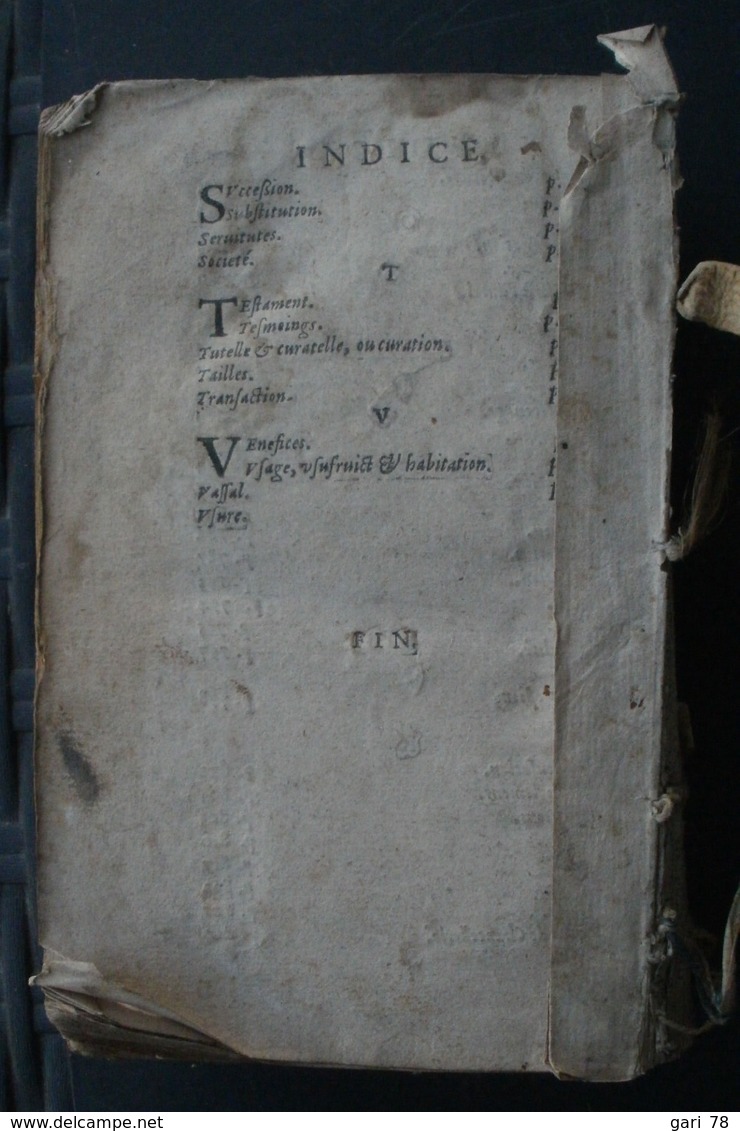 INDICE.
SVcceßion. p.
Substitution. p.
Seruitutes. p.
Societé. p
T
TEſtament.
Teſmoings. p.
Tutelle & curatelle, ou curation. p
Tailles.
Tranſaction.
V
VEnefices.
Vſage, vſufruict & habitation.
Vaſſal.
Vſure.
FIN.
www.delcampe.net
gari 78